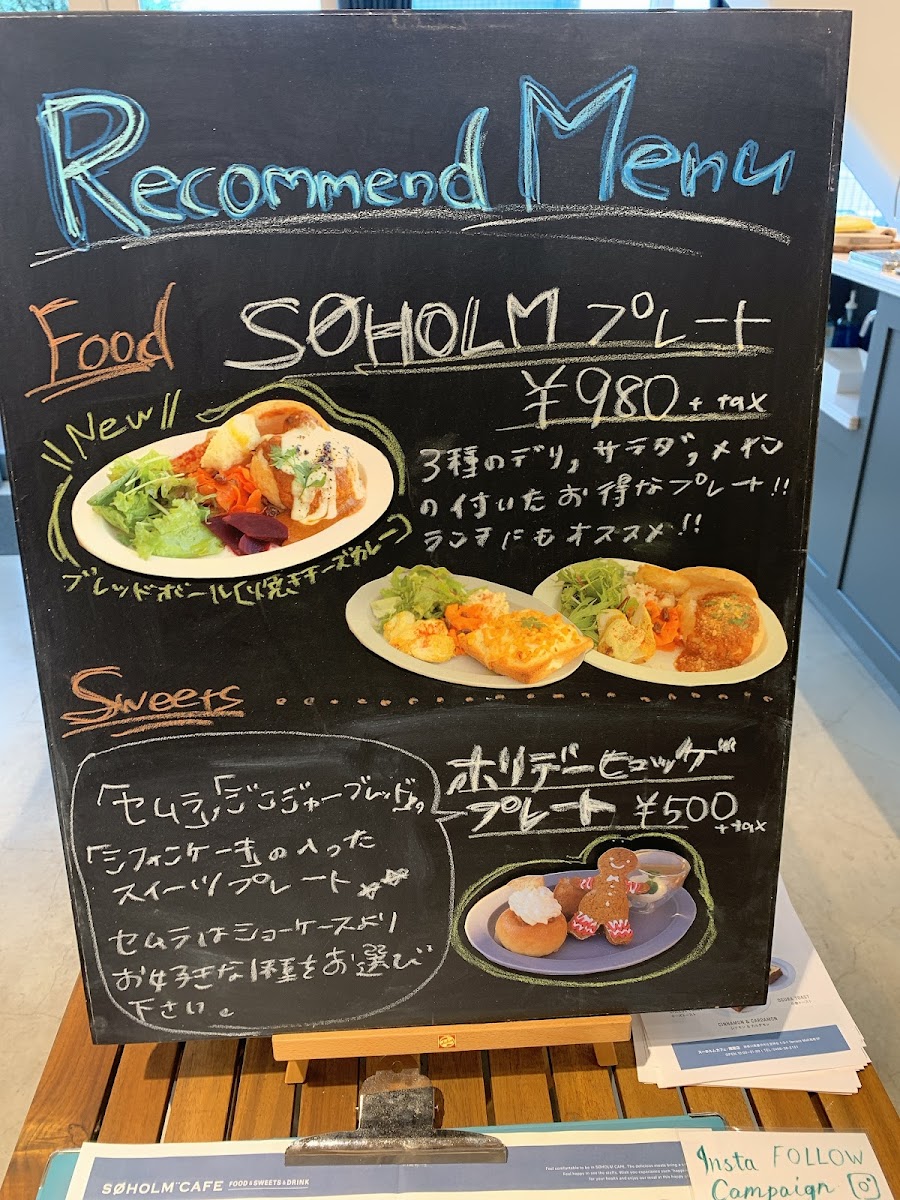 Recommend Menu
Food
SØHOLM プレート
¥980 + tax
\\New//
3種のデリ, サラダ, メイン
の付いた お得なプレート!!
ランチにも オススメ!!
ブレッドボール(焼きチーズカレー)
Sweets
ホリデーヒュッゲ
プレート ¥500
+tax
「セムラ」「ジンジャーブレッド」
「シフォンケーキ」の入った
スイーツプレート
セムラはショーケースより
お好きな1種をお選び
下さい。
CINNAMON & CARDAMON
SØHOLM CAFE FOOD & SWEETS & DRINK
Insta FOLLOW
Campaign